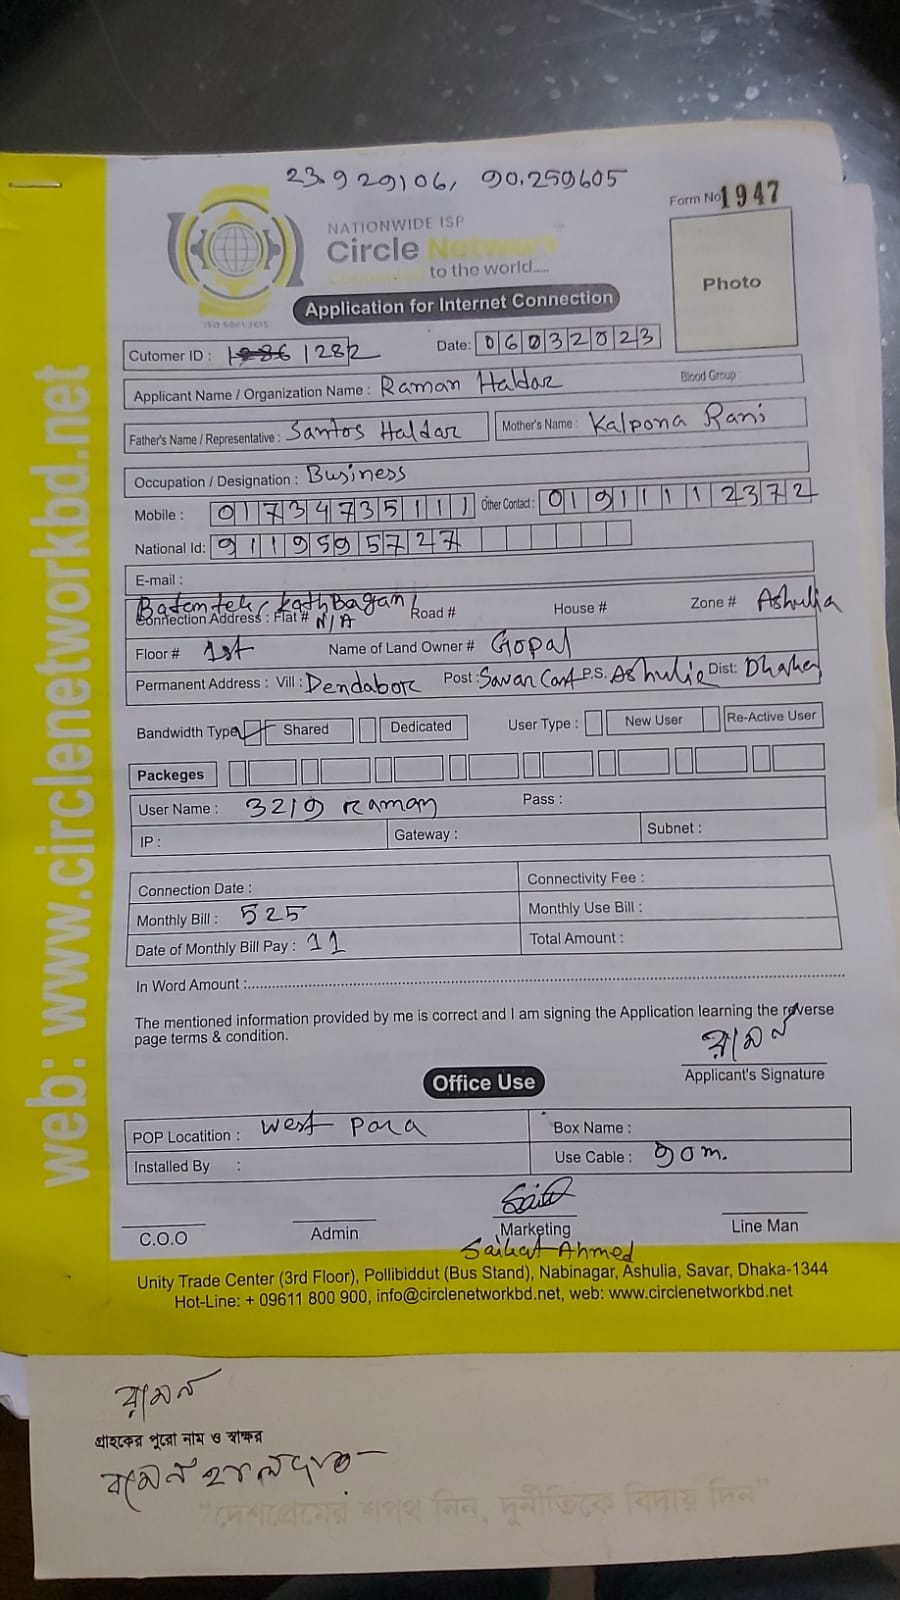 23.929106, 90.259605
Form No 1947
NATIONWIDE ISP
Circle Network
to the world.....
ISO 9001:2015
Photo
Application for Internet Connection
Cutomer ID : 1282 Date: 06032023
Applicant Name / Organization Name : Raman Haldar Blood Group :
Father's Name / Representative : Santos Haldar Mother's Name : Kalpona Rani
Occupation / Designation : Business
Mobile : 01734735111 Other Contact : 01911112372
National Id: 9119595727
E-mail :
Batemtek, KathBagan
Connection Address : Flat # N/A Road # House # Zone # Ashulia
Floor # 1st Name of Land Owner # Gopal
Permanent Address : Vill : Dendabor Post : Savar Cant P.S. Ashulia Dist: Dhaka
Bandwidth Type Shared Dedicated User Type : New User Re-Active User
Packeges
User Name : 3219 raman Pass :
IP : Gateway : Subnet :
Connection Date : Connectivity Fee :
Monthly Bill : 525 Monthly Use Bill :
Date of Monthly Bill Pay : 11 Total Amount :
In Word Amount :
The mentioned information provided by me is correct and I am signing the Application learning the reverse
page terms & condition.
রামন
Applicant's Signature
Office Use
POP Locatition : West Para Box Name :
Installed By : Use Cable : 90m.
C.O.O Admin Marketing Line Man
Saikat Ahmed
Unity Trade Center (3rd Floor), Pollibiddut (Bus Stand), Nabinagar, Ashulia, Savar, Dhaka-1344
Hot-Line: + 09611 800 900, info@circlenetworkbd.net, web: www.circlenetworkbd.net
web: www.circlenetworkbd.net
রামন
গ্রাহকের পুরো নাম ও স্বাক্ষর
রামেন হালদার
"দেশপ্রেমের শপথ নিন, দুর্নীতিকে বিদায় দিন"